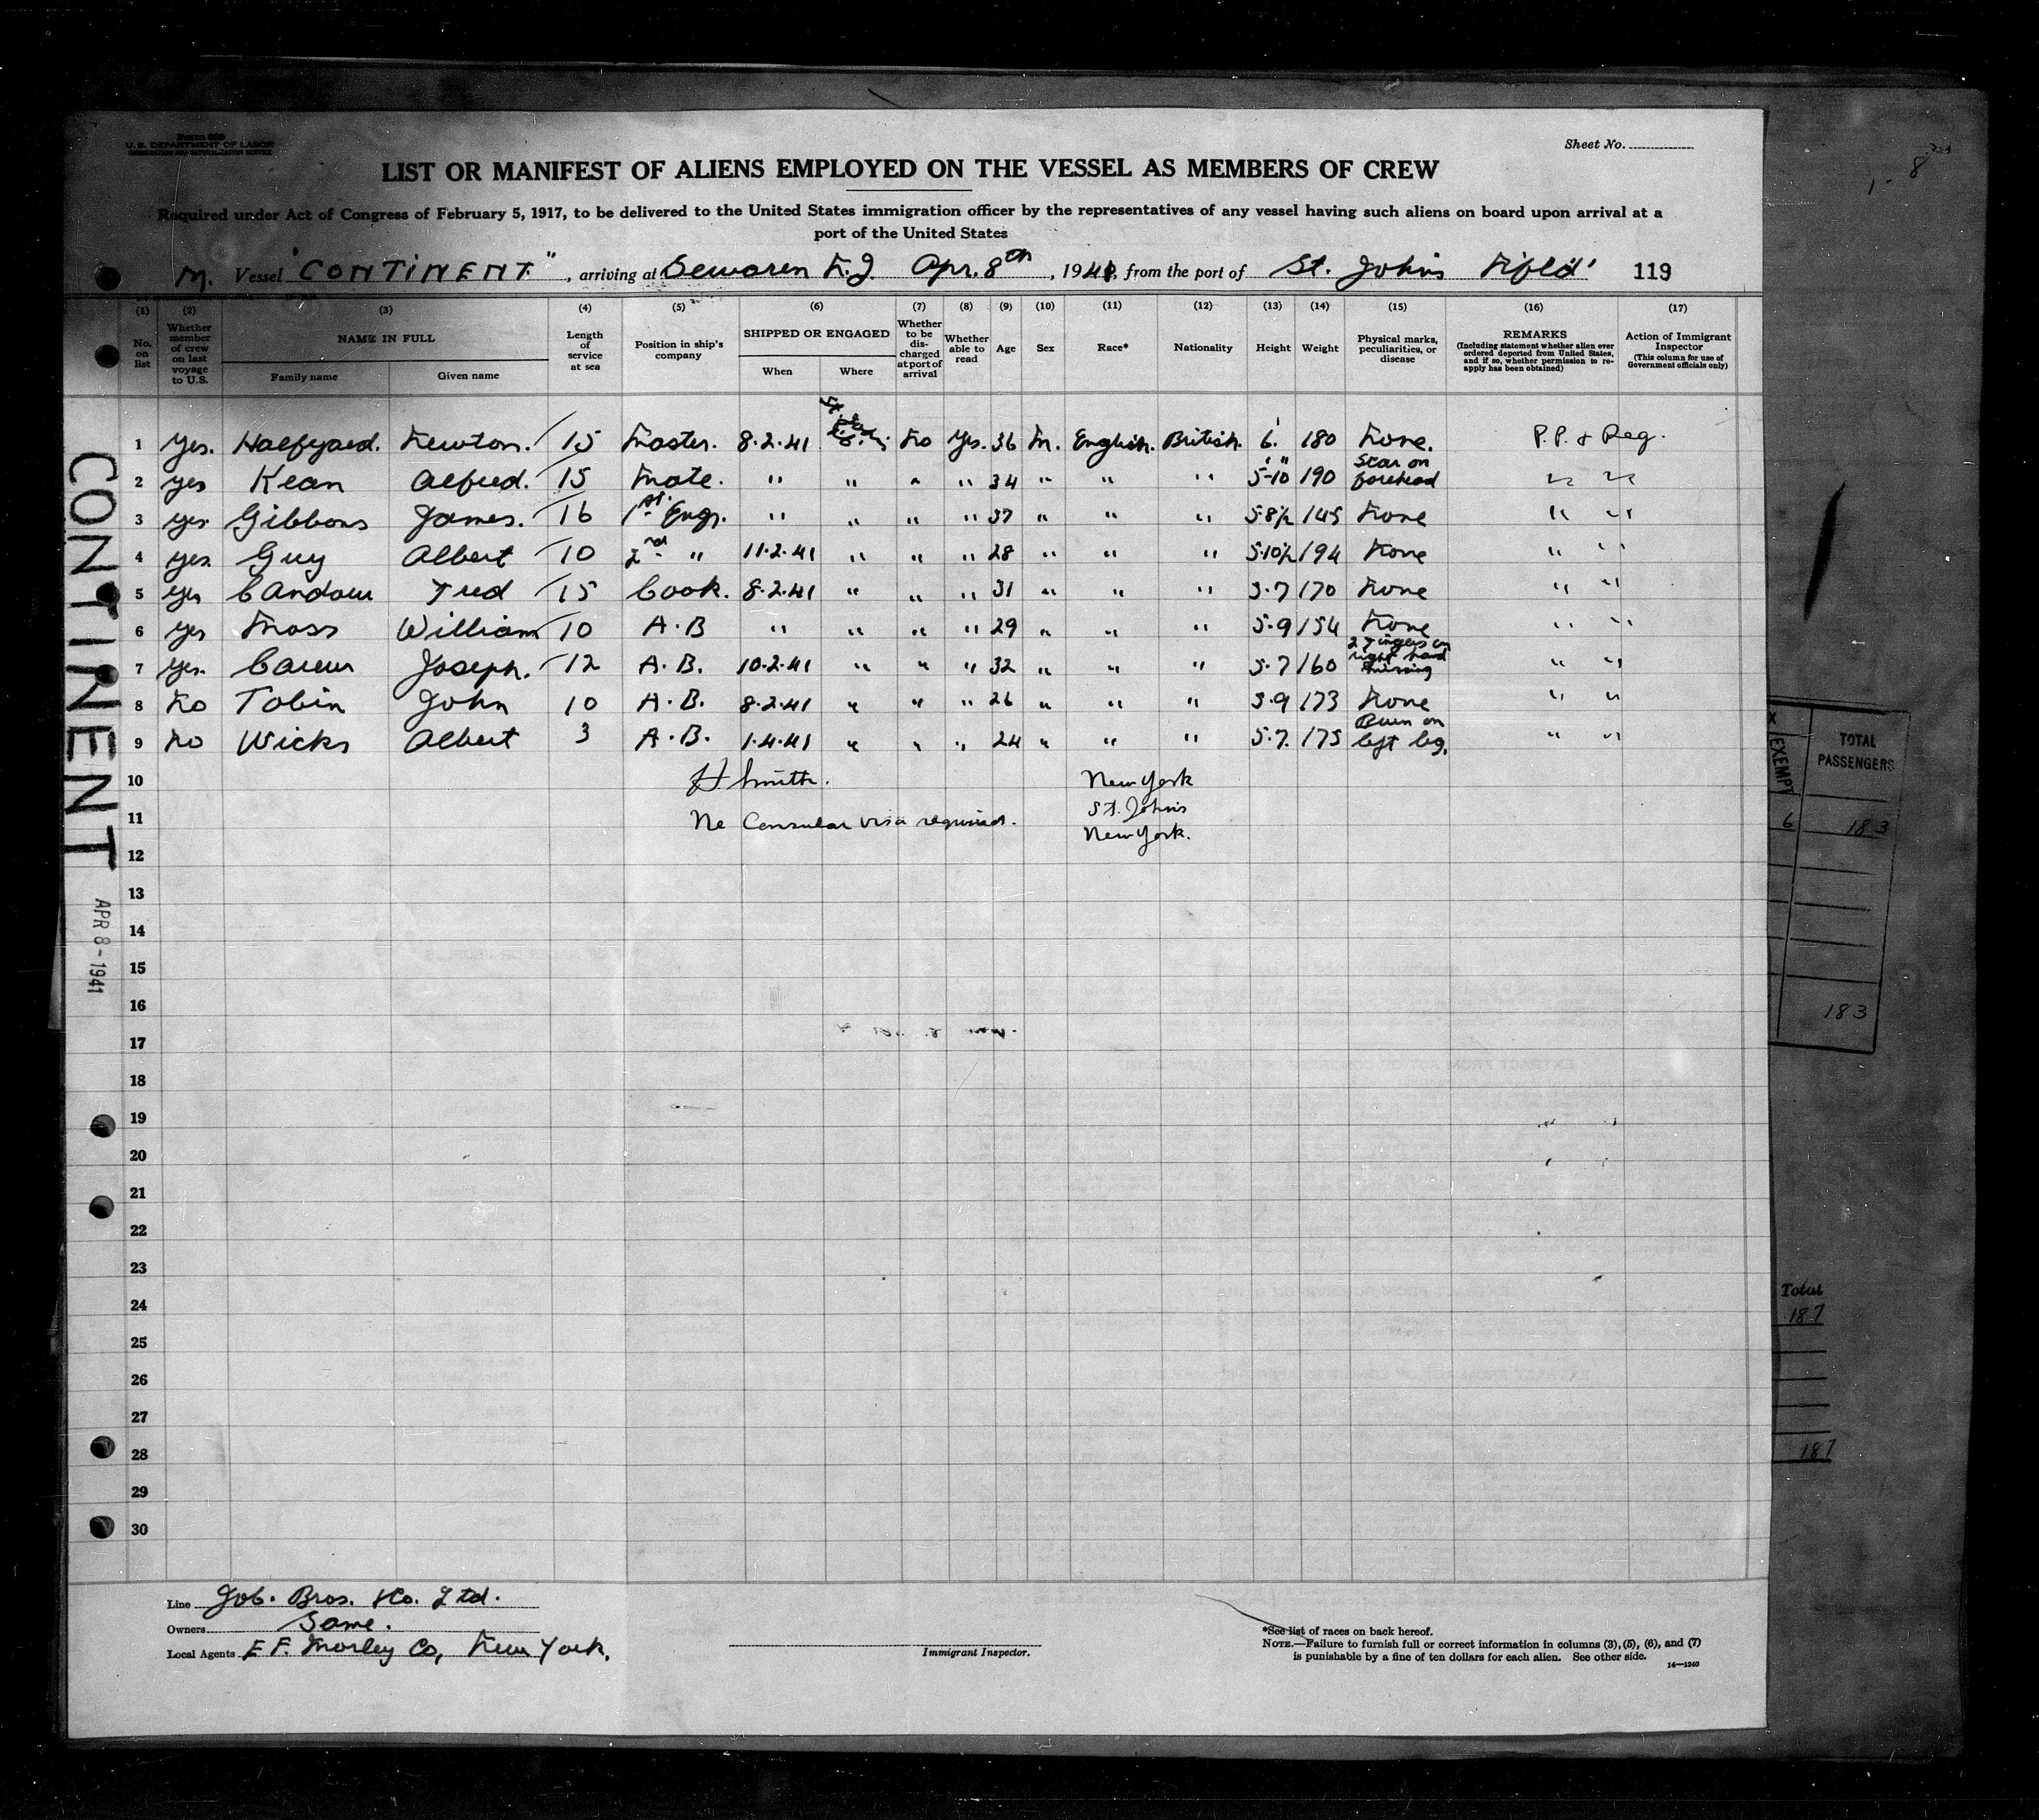 Form 680
U.S. DEPARTMENT OF LABOR
IMMIGRATION AND NATURALIZATION SERVICE
Sheet No.
LIST OR MANIFEST OF ALIENS EMPLOYED ON THE VESSEL AS MEMBERS OF CREW
Required under Act of Congress of February 5, 1917, to be delivered to the United States immigration officer by the representatives of any vessel having such aliens on board upon arrival at a
port of the United States
M. Vessel "CONTINENT", arriving at Sewaren N.J. Apr. 8th, 1941, from the port of St. John's Nfld' 119
(1) (2) (3) (4) (5) (6) (7) (8) (9) (10) (11) (12) (13) (14) (15) (16) (17)
No. on list Whether member of crew on last voyage to U.S. NAME IN FULL Family name Given name Length of service at sea Position in ship's company SHIPPED OR ENGAGED When Where Whether to be discharged at port of arrival Whether able to read Age Sex Race* Nationality Height Weight Physical marks, peculiarities, or disease REMARKS (Including statement whether alien ever ordered deported from United States, and if so, whether permission to reapply has been obtained) Action of Immigrant Inspector (This column for use of Government officials only)
1 Yes. Halfyard. Newton. 15 Master. 8.2.41 No Yes. 36 M. English. British. 6' 180 None. P.P. & Reg.
2 yes Kean Alfred. 15 Mate. " " " " 34 " " " 5-10 190 Scar on forehead " "
3 yes. Gibbons James. 16 1st Engr. " " " " 37 " " " 5.8½ 145 None " "
4 yes. Guy Albert 10 2nd " 11.2.41 " " " 28 " " " 5.10½ 194 None " "
5 yes Candow Fred 15 Cook. 8.2.41 " " " 31 " " " 5.7 170 None " "
6 yes Moss William 10 A.B " " " " 29 " " " 5.9 154 None " "
7 yes. Carew Joseph. 12 A.B. 10.2.41 " " " 32 " " " 5.7 160 2 Fingers on right hand missing " "
8 No Tobin John 10 A.B. 8.2.41 " " " 26 " " " 5.9 173 None " "
9 No Wicks Albert 3 A.B. 1.4.41 " " " 24 " " " 5.7. 175 Burn on left leg. " "
10 H Smith. New York
11 No Consular visa required. St. Johns
New York.
12
13
14
15
16
17
18
19
20
21
22
23
24
25
26
27
28
29
30
CONTINENT
APR 8-1941
Line Job. Bros. & Co. Ltd.
Owners Same.
Local Agents E F. Morley Co, New York.
Immigrant Inspector.
*See list of races on back hereof.
NOTE.—Failure to furnish full or correct information in columns (3), (5), (6), and (7)
is punishable by a fine of ten dollars for each alien. See other side.
14—1240
EXEMPT
TOTAL PASSENGERS
6 183
183
Total
187
187